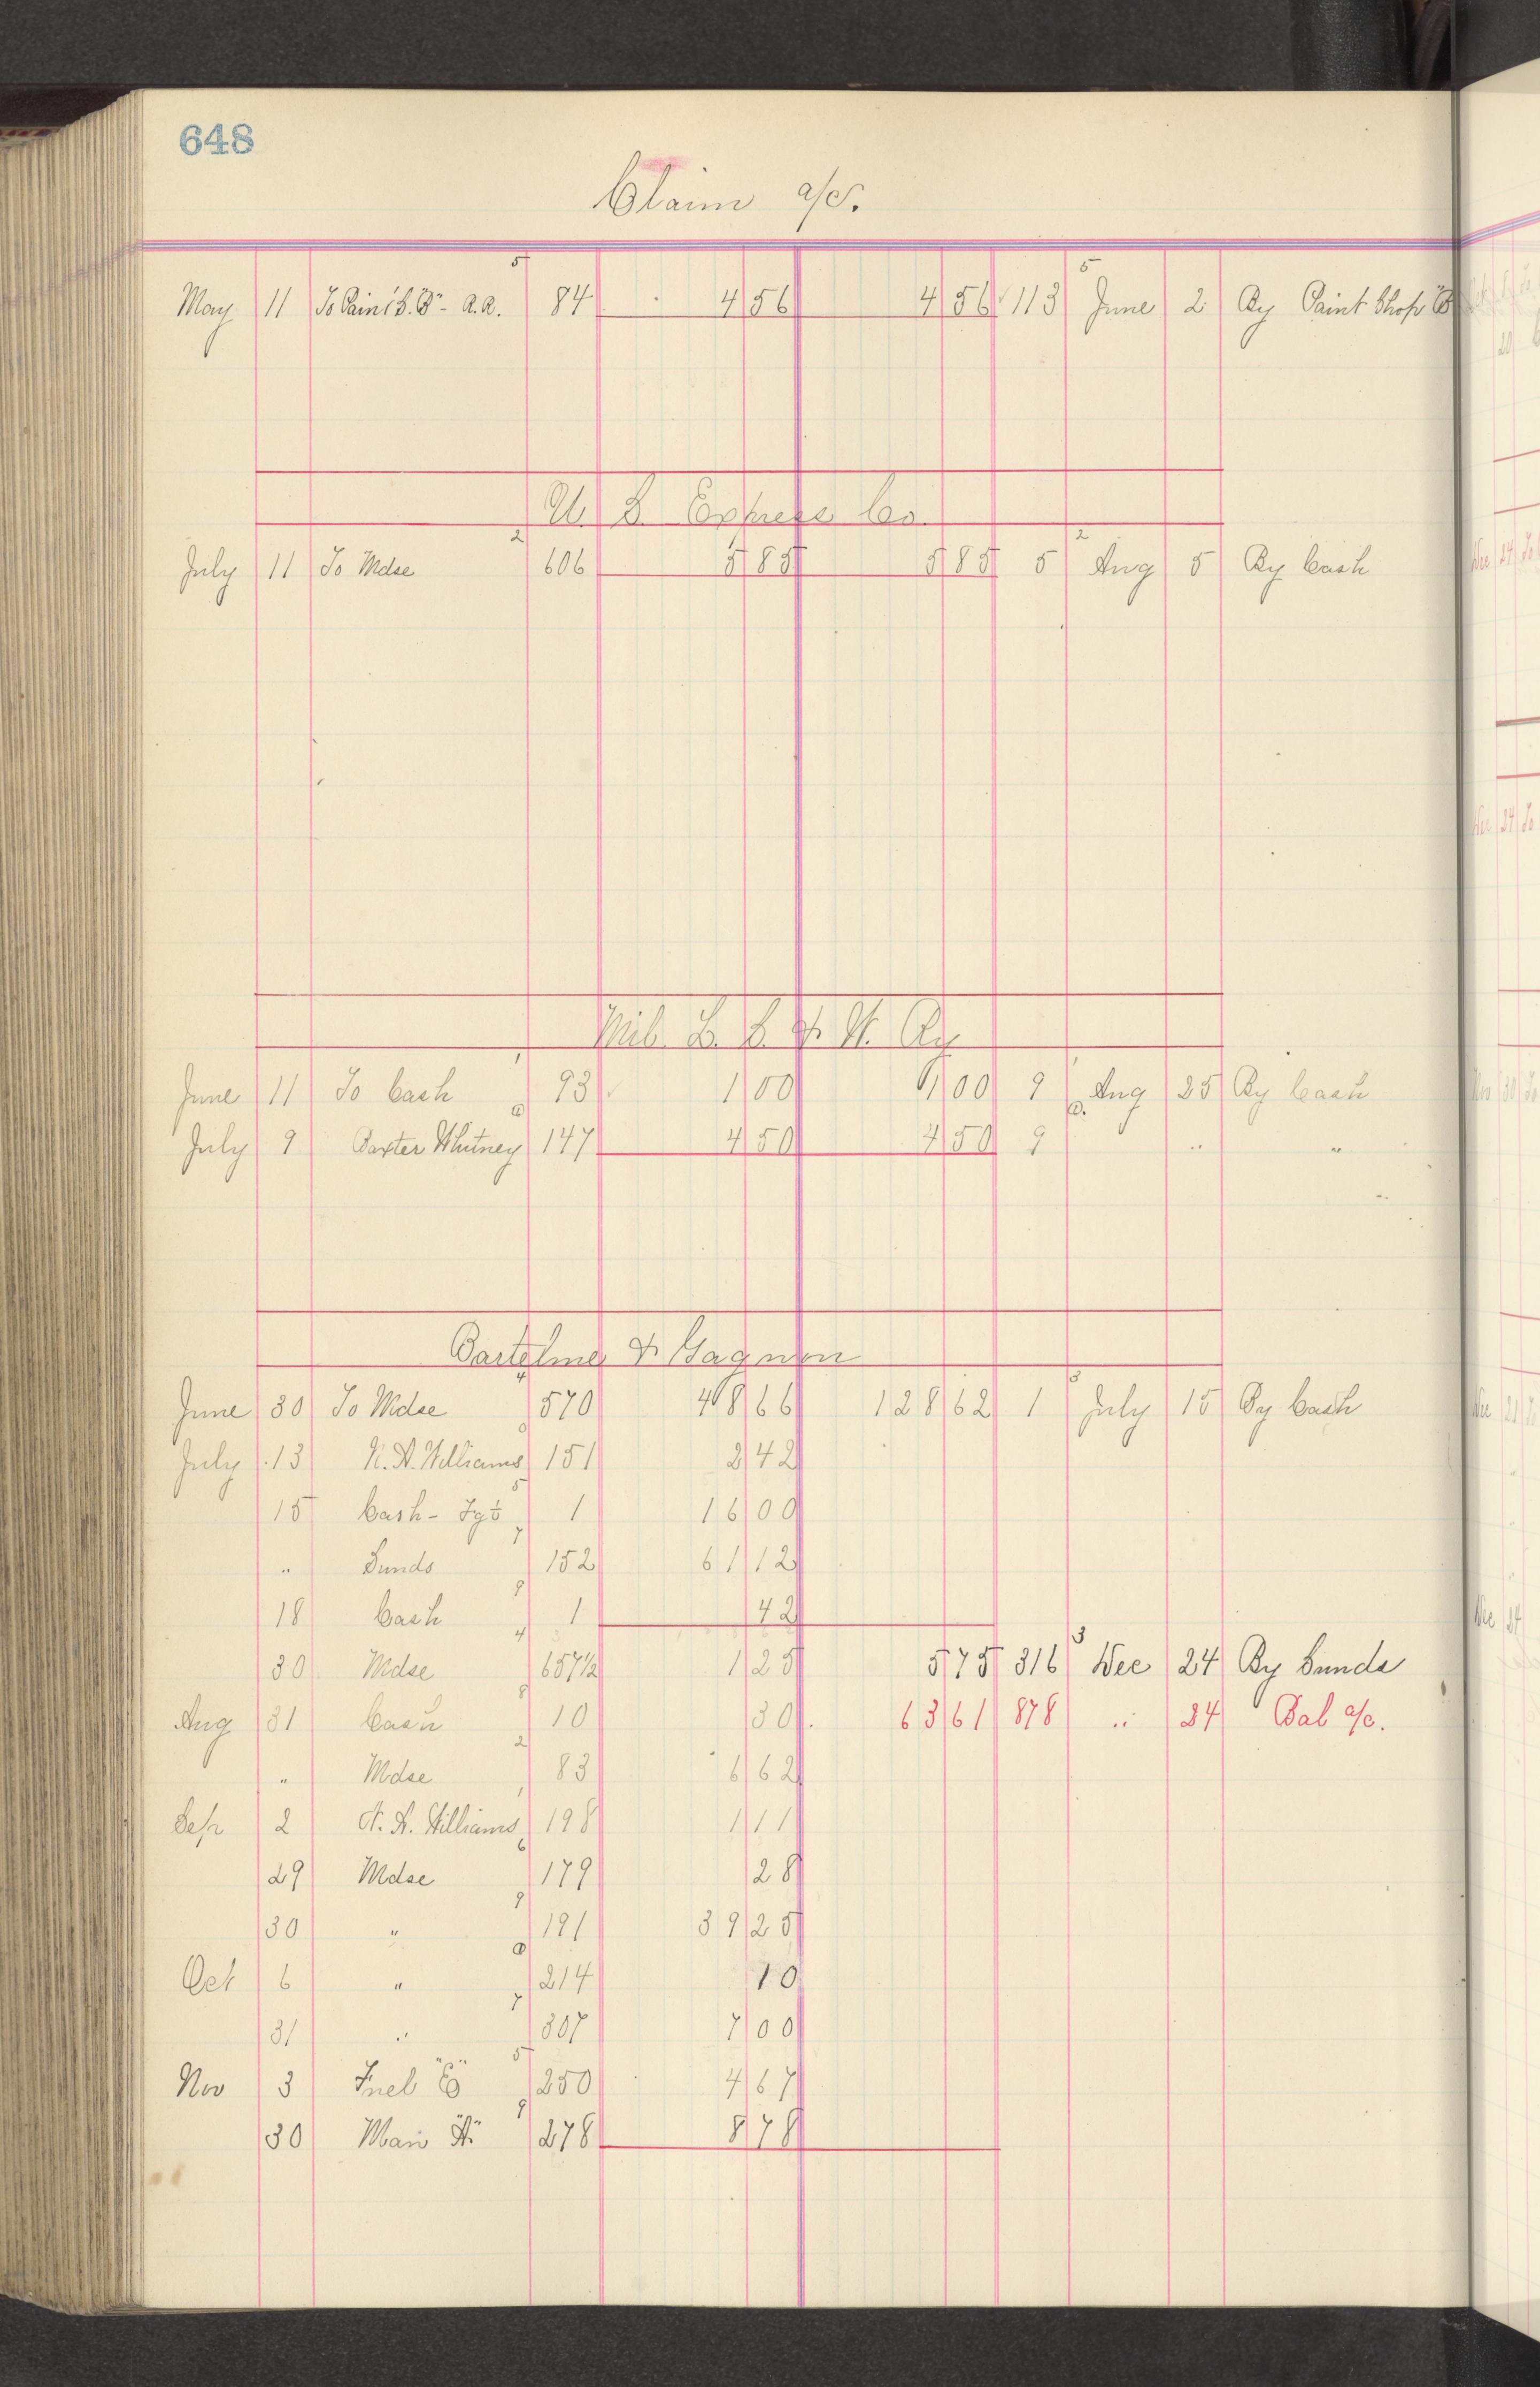 648
Claim a/c.
May 11 To Paint S. "B" - a.a. 5 84 4 56 4 56 113 5 June 2 By Paint Shop "B"
U. S. Express Co.
July 11 To Mdse 2 606 5 85 5 85 5 2 Aug 5 By Cash
Mil. L. S. & W. Ry
June 11 To Cash 1 93 1 00 1 00 9 Aug 25 By Cash
July 9 Baxter Whitney 147 4 50 4 50 9 " "
Bartelme & Gagnon
June 30 To Mdse 4 570 48 66 128 62 1 July 15 By Cash
July 13 N. A. Williams 151 2 42
15 Cash - 5 1 16 00
" Sunds 7 152 61 12
18 Cash 9 1 42
30 Mdse 4 657 1/2 1 25 5 75 316 3 Dec 24 By Sunds
Aug 31 Cash 8 10 30 63 61 878 " 24 Bal a/c.
" Mdse 2 83 6 62
Sep 2 N. A. Williams 198 1 11
29 Mdse 6 179 28
30 " 9 191 39 25
Oct 6 " 214 10
31 " 7 307 7 00
Nov 3 Fuel "E" 5 250 4 67
30 Man "A" 9 278 8 78